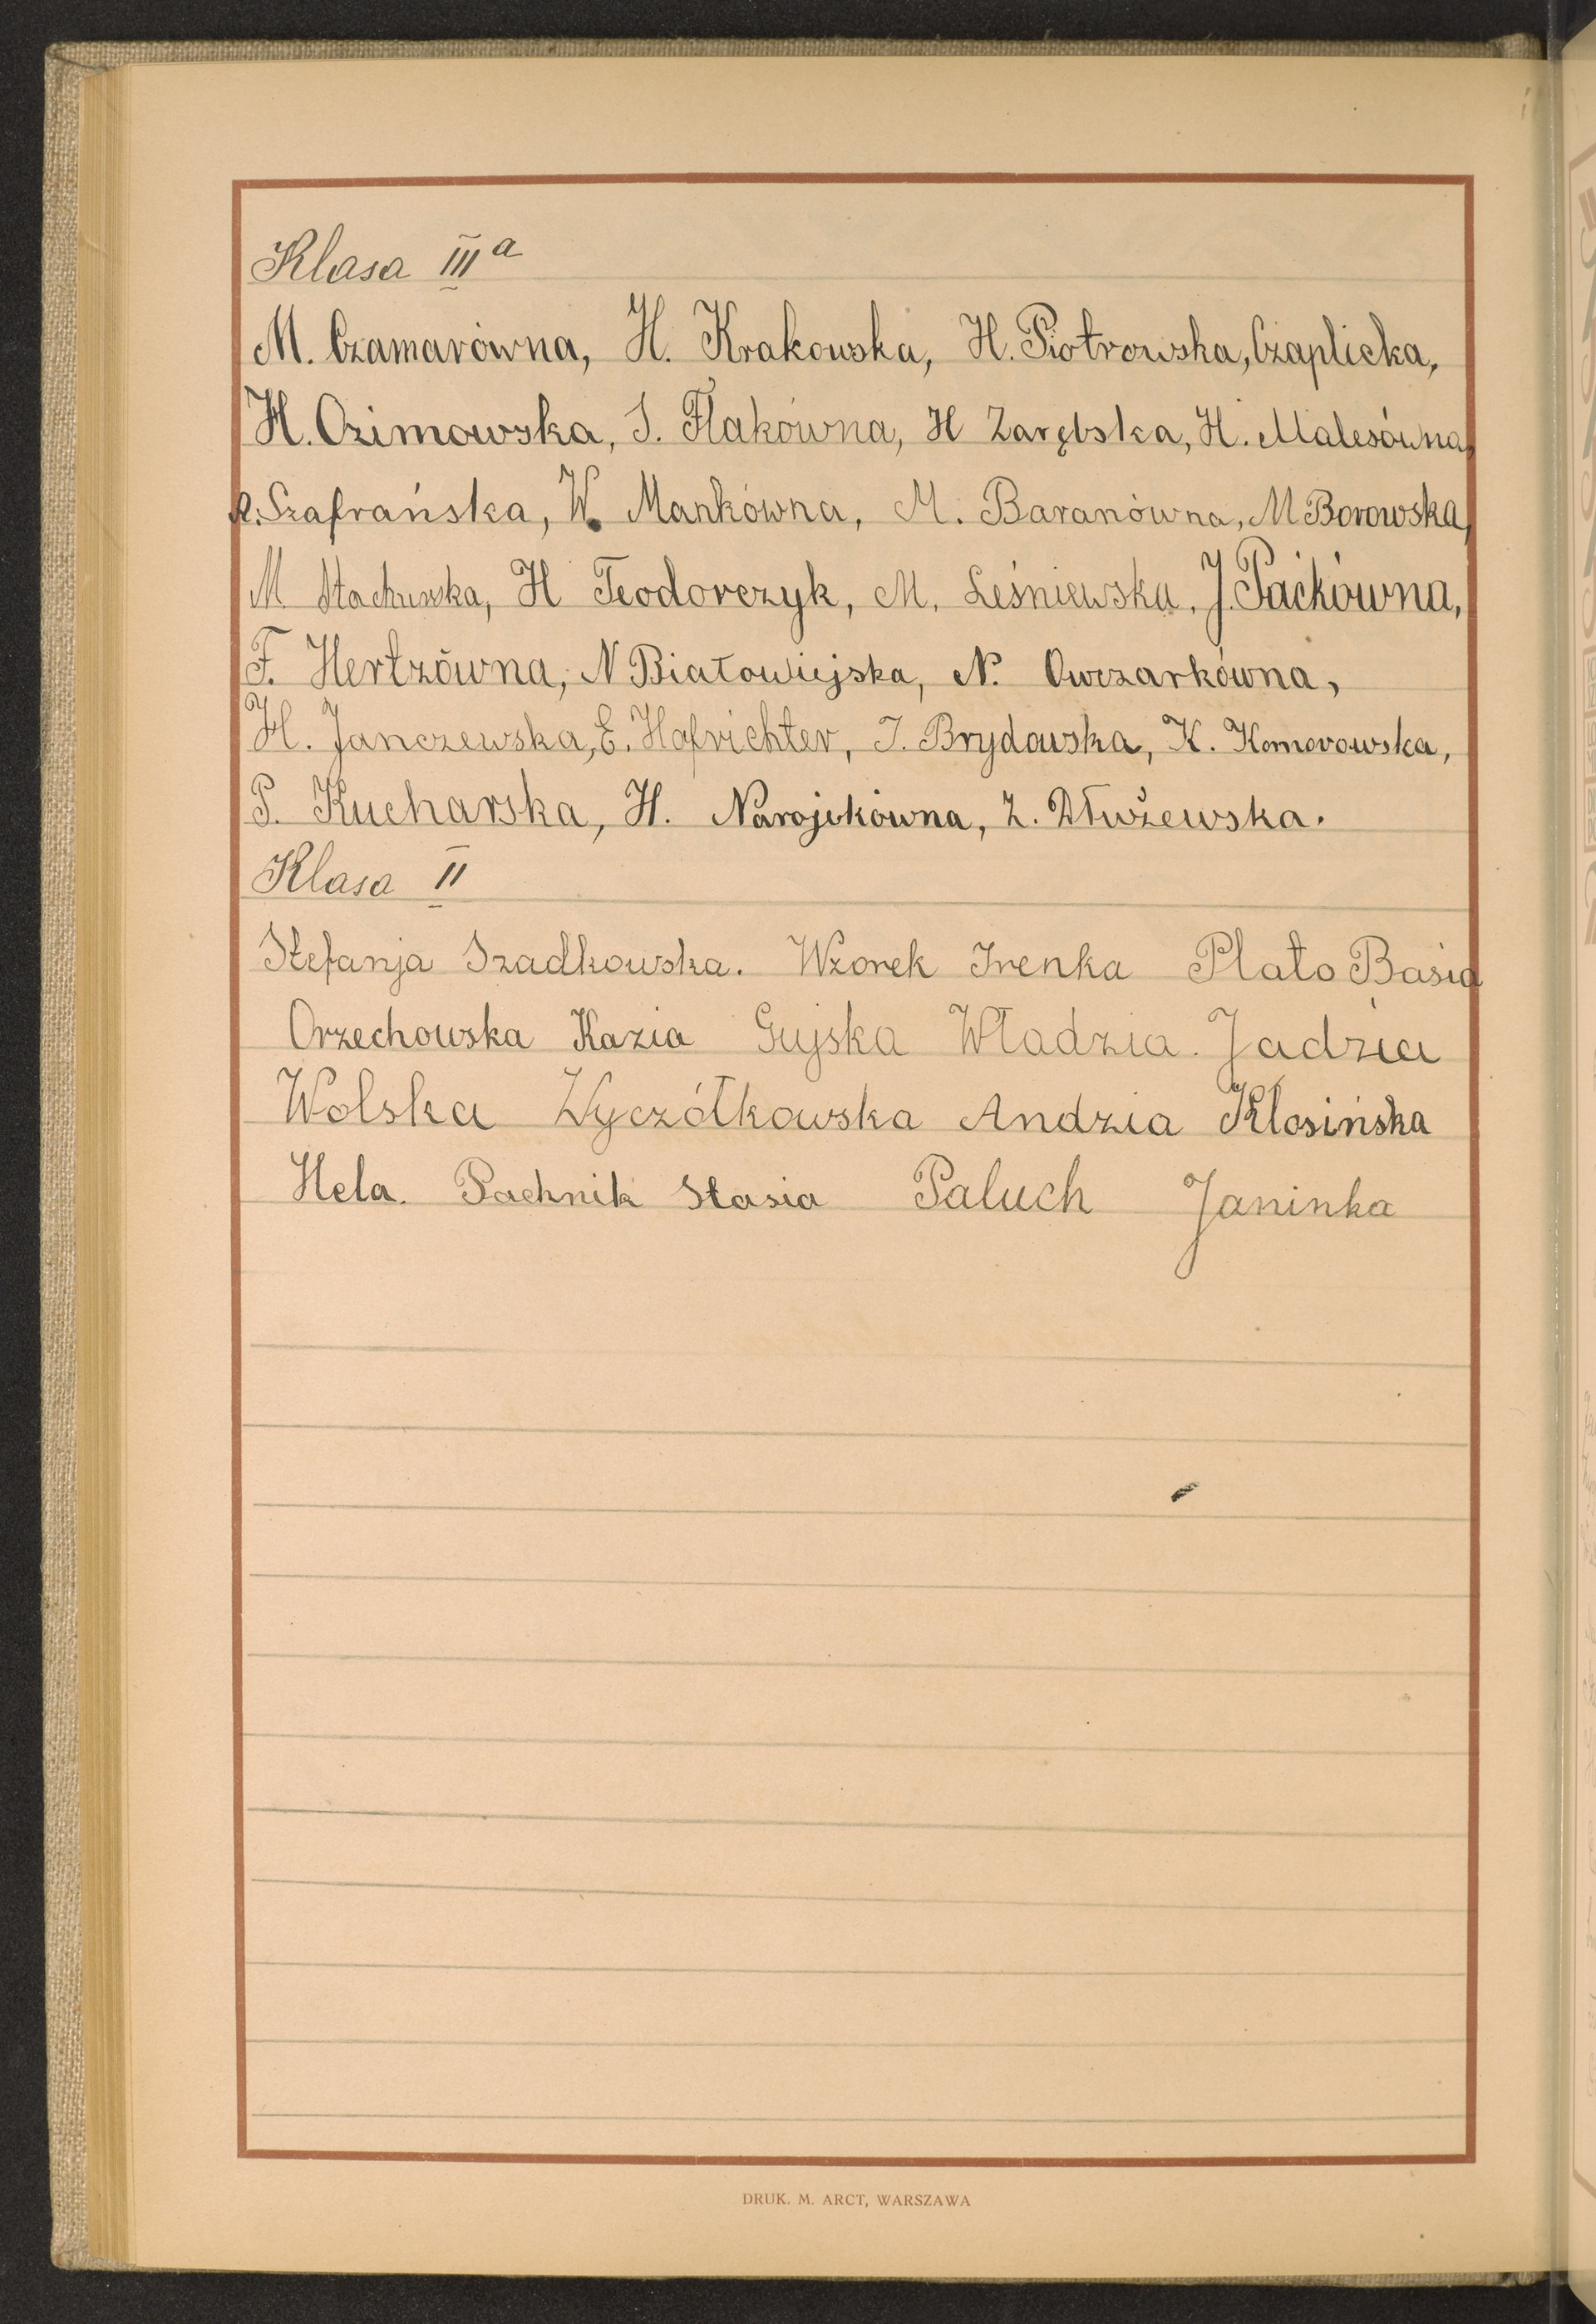 Klasa III a
M. Czamarówna, H. Krakowska, H. Piotrowska, Czaplicka,
H. Ozimowska, I. Flakówna, H Zarębska, H. Malesówna,
R. Szafrańska, W. Mankówna, M. Baranówna, M Borowska,
M Stachurska, H Teodorczyk, M. Leśniewska, J. Paćkówna,
F. Hertzówna, N Białowiejska, N. Owczarkówna,
H. Janczewska, E. Hofrichter, I. Brydowska, K. Komorowska,
P. Kucharska, H. Narojekówna, Z. Dłużewska.
Klasa II
Stefanja Szadkowska. Wzorek Irenka Plato Basia
Orzechowska Kazia Gujska Władzia. Jadzia
Wolska Wyczółkowska Andzia Kłosińska
Hela. Pachnik Stasia Paluch Janinka
DRUK. M. ARCT, WARSZAWA